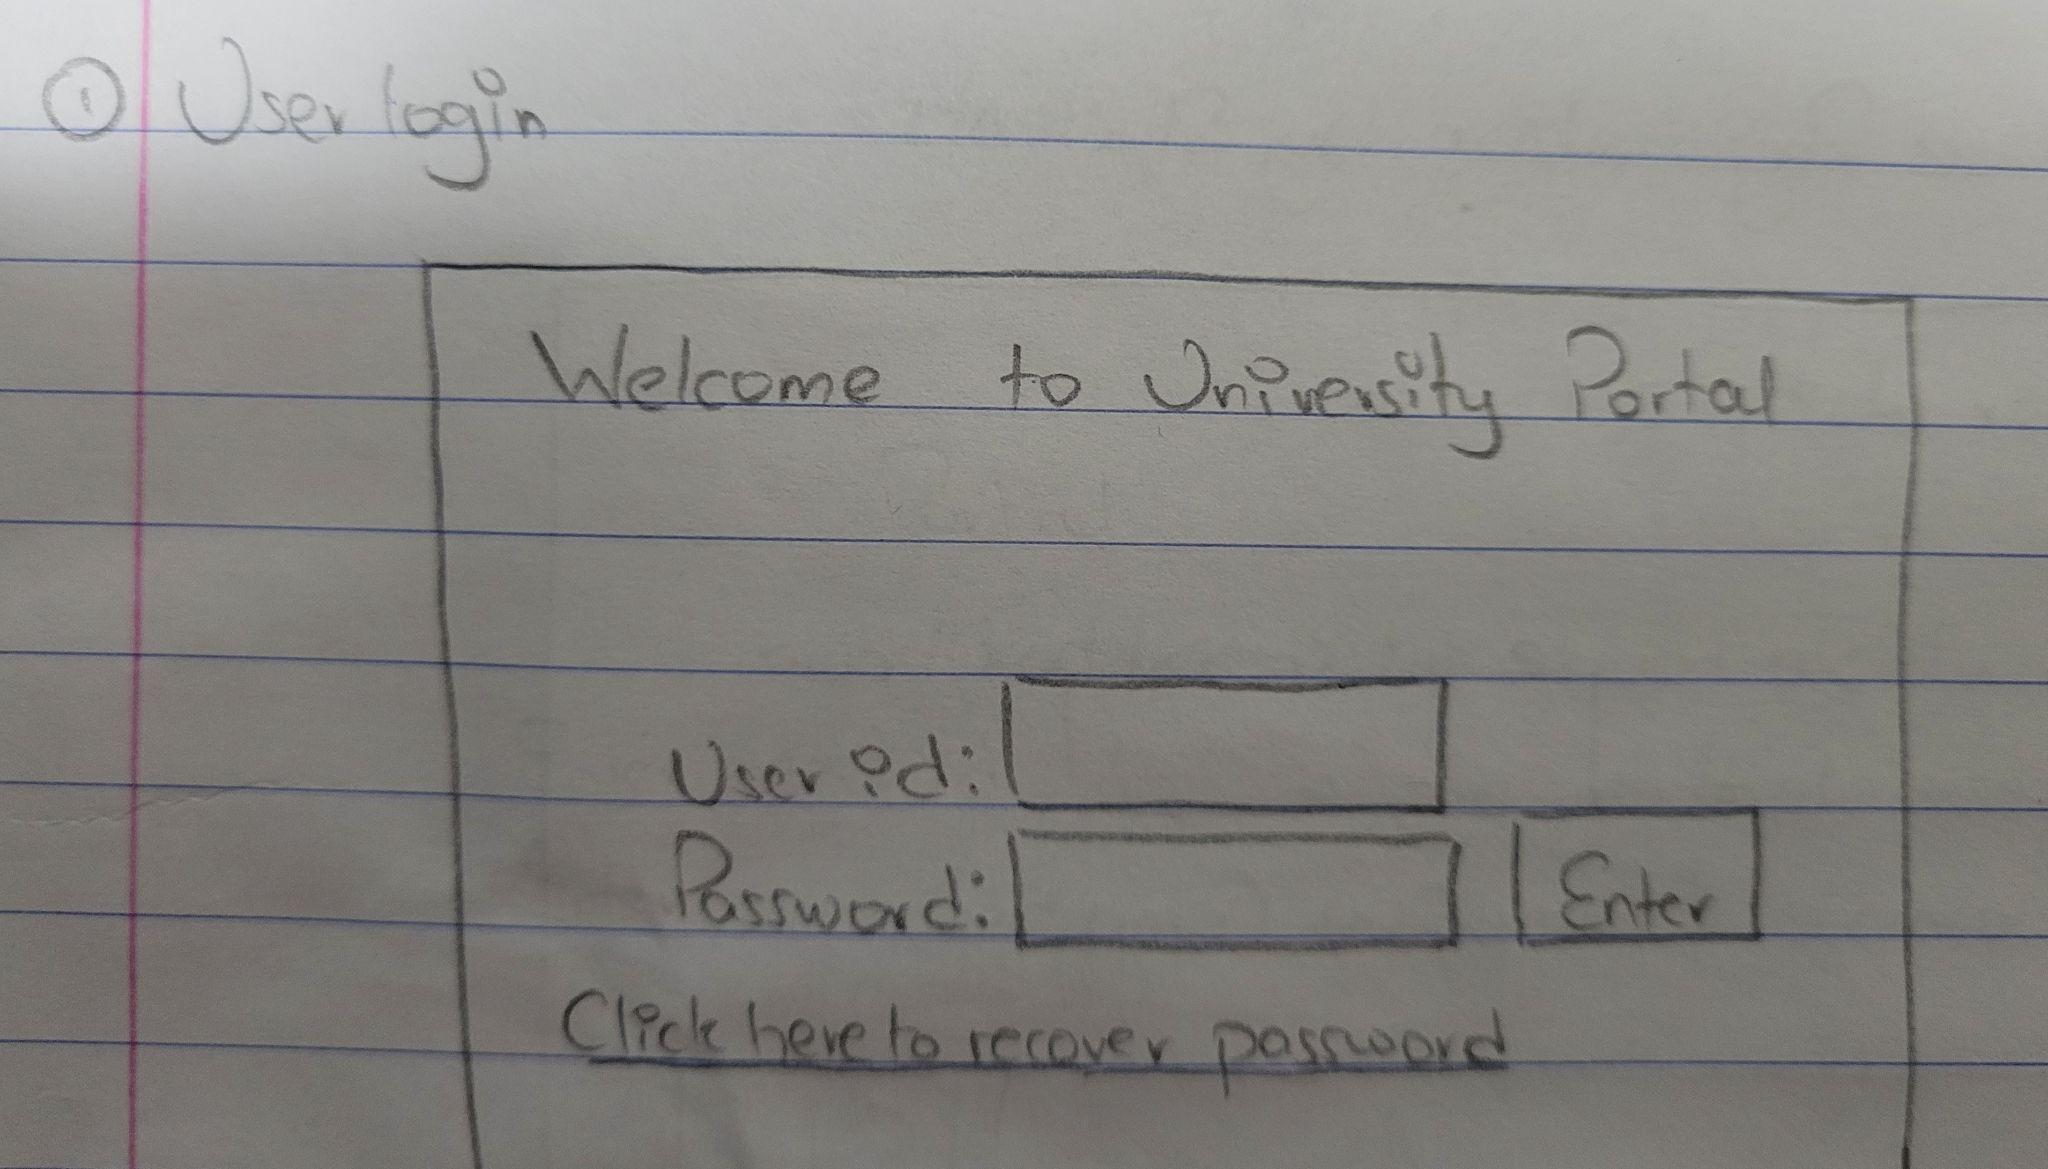 ① User login
Welcome to University Portal
User id:
Password: Enter
Click here to recover password